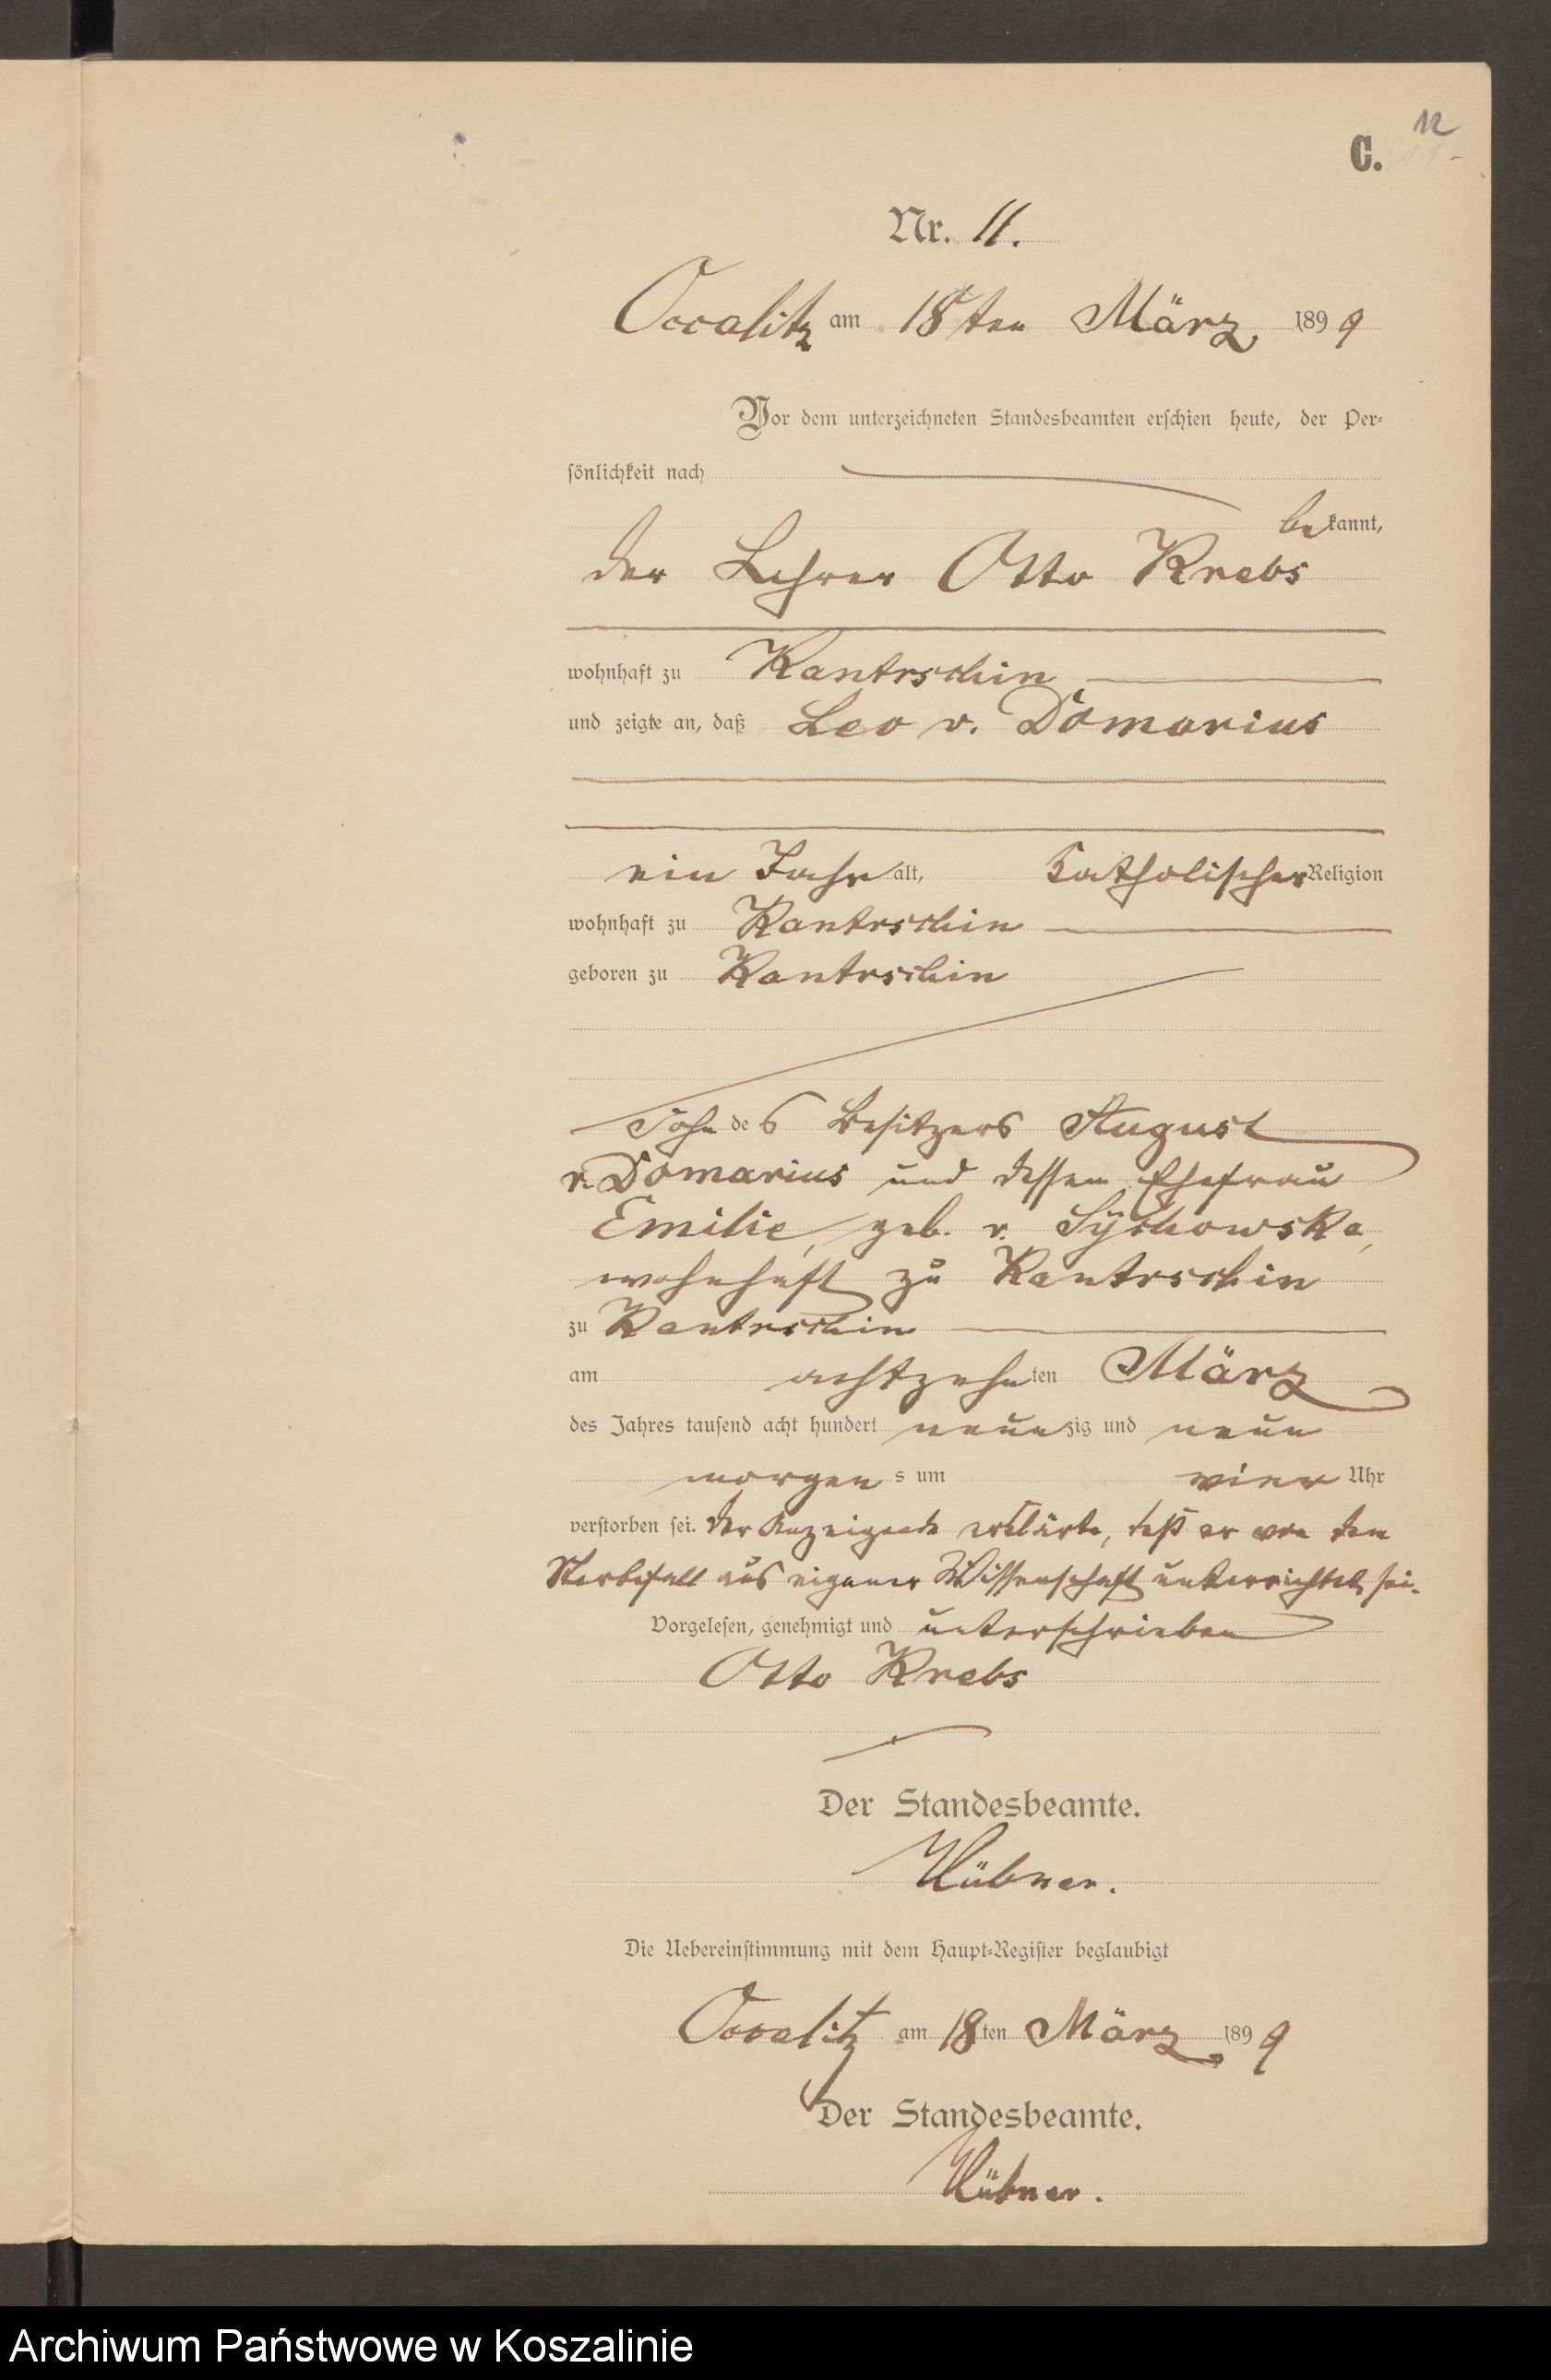 12
C. 11-
Nr. 11.
Occalitz am 18ten März 1899
Vor dem unterzeichneten Standesbeamten erschien heute, der Per-
sönlichkeit nach
bekannt,
der Lehrer Otto Krebs
wohnhaft zu Kantrschin
und zeigte an, daß Leo v. Domarius
ein Jahr alt, katholischer Religion
wohnhaft zu Kantrschin
geboren zu Kantrschin
Sohn des Besitzers August
v. Domarius und dessen Ehefrau
Emilie, geb. v. Sÿchowska,
wohnhaft zu Kantrschin
zu Kantrschin
am achtzehnten März
des Jahres tausend acht hundert neunzig und neun
morgens um vier Uhr
verstorben sei. Der Anzeigende erklärte, daß er von dem
Sterbefall aus eigener Wissenschaft unterrichtet sei.
Vorgelesen, genehmigt und unterschrieben
Otto Krebs
Der Standesbeamte.
Hübner.
Die Uebereinstimmung mit dem Haupt-Register beglaubigt
Occalitz am 18ten März 1899
Der Standesbeamte.
Hübner.
Archiwum Państwowe w Koszalinie